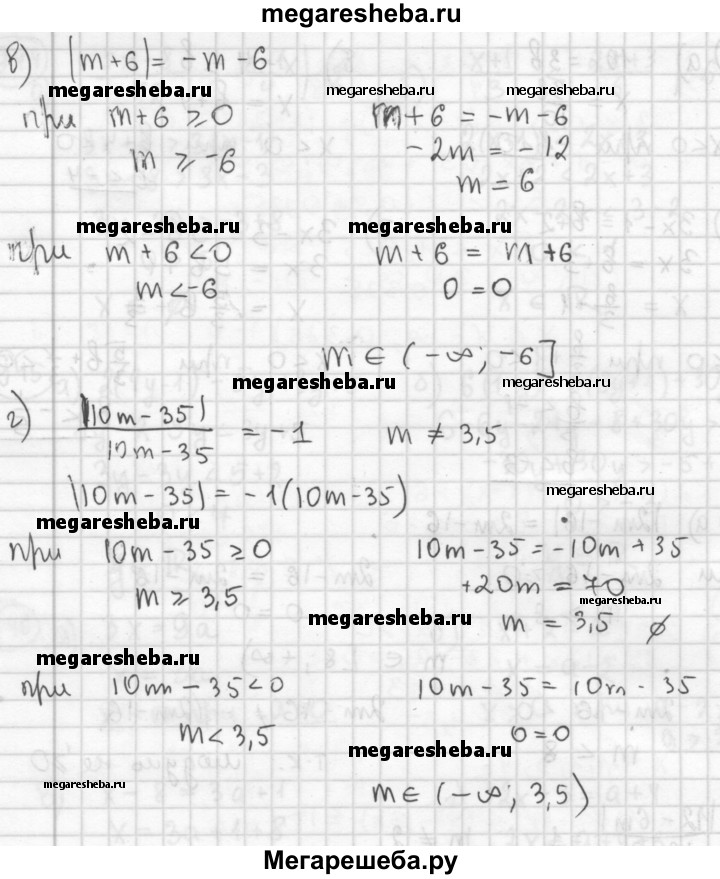 megaresheba.ru
в) |m+6| = -m-6
megaresheba.ru megaresheba.ru megaresheba.ru
при m+6 ≥ 0 m+6 = -m-6
m ≥ -6 -2m = -12
m = 6
megaresheba.ru megaresheba.ru
при m+6 < 0 m+6 = m+6
m < -6 0 = 0
m ∈ (-∞; -6]
megaresheba.ru megaresheba.ru
г) |10m-35| / 10m-35 = -1 m ≠ 3,5
|10m-35| = -1(10m-35)
megaresheba.ru megaresheba.ru
при 10m-35 ≥ 0 10m-35 = -10m+35
m ≥ 3,5 +20m = 70
megaresheba.ru megaresheba.ru
m = 3,5 ∅
megaresheba.ru
при 10m-35 < 0 10m-35 = 10m-35
m < 3,5 0 = 0
megaresheba.ru
megaresheba.ru
m ∈ (-∞; 3,5)
Мегарешеба.ру